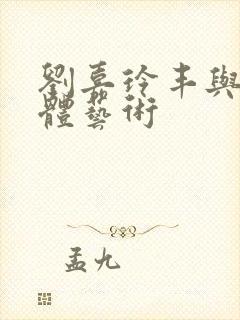 劉嘉玲丰與
體藝術
孟九